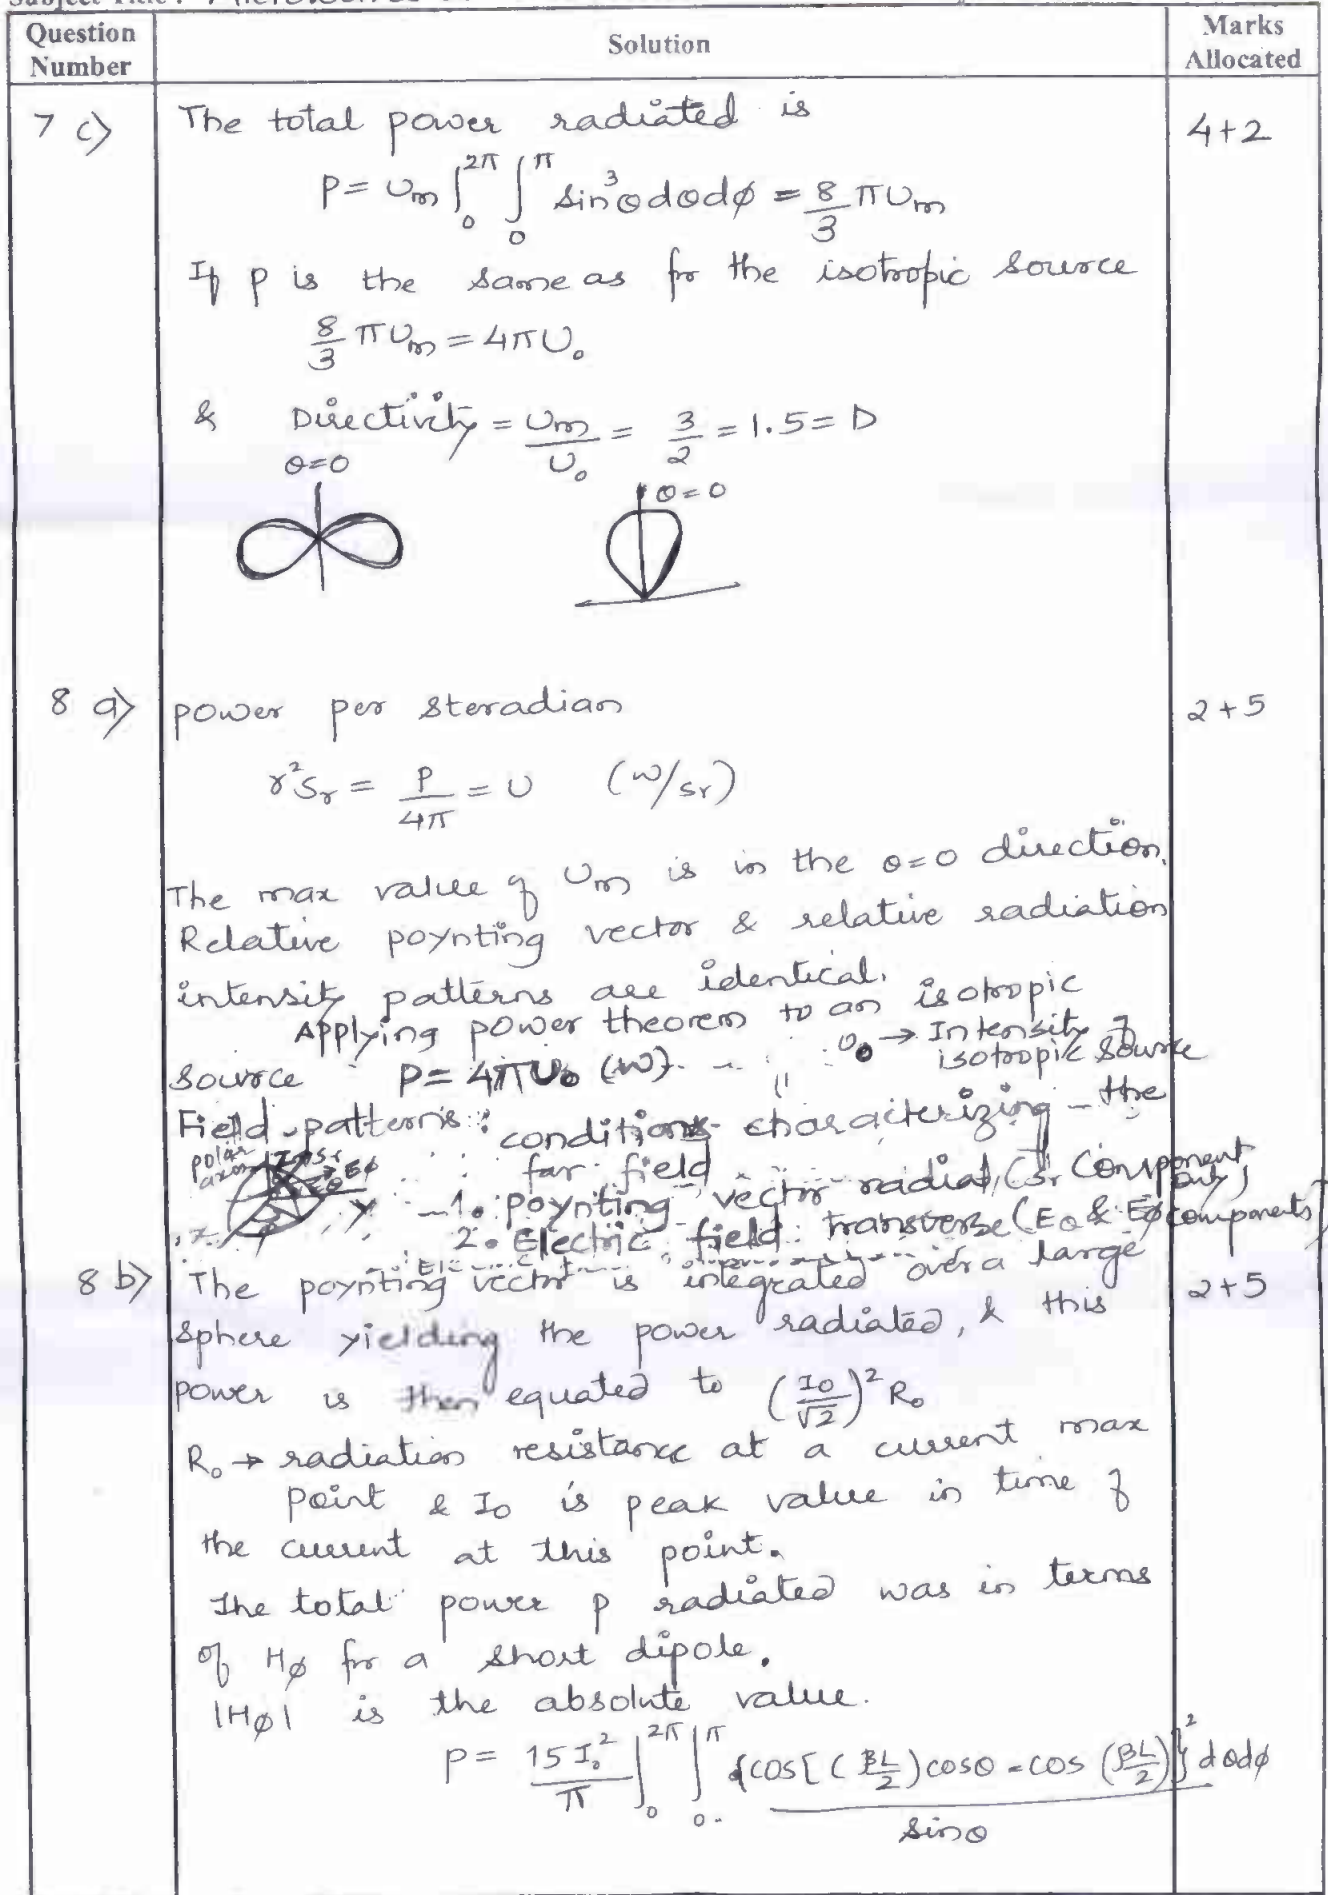 Question Number | Solution | Marks Allocated
7 c) The total power radiated is 4+2
P = Um ∫₀^2π ∫₀^π sin³θ dθ dφ = 8/3 πUm
If P is the same as for the isotropic source
8/3 πUm = 4πU₀
& Directivity = Um/U₀ = 3/2 = 1.5 = D
θ=0
θ=0
8 a) power per steradian 2+5
r²Sr = P/4π = U (W/sr)
The max value of Um is in the θ=0 direction.
Relative poynting vector & relative radiation
intensity patterns are identical.
Applying power theorem to an isotropic
source P = 4πU₀ (W). U₀ → Intensity of
isotropic source
Field patterns: conditions characterizing the
far field
polar axis
Sr
Eφ
Eθ
y
x
1. poynting vector radial (Sr component only)
2. Electric field transverse (Eθ & Eφ components)
8 b) The poynting vector is integrated over a large 2+5
sphere yielding the power radiated, & this
power is then equated to (I₀/√2)² R₀
R₀ → radiation resistance at a current max
point & I₀ is peak value in time of
the current at this point.
The total power P radiated was in terms
of Hφ for a short dipole.
|Hφ| is the absolute value.
P = 15 I₀²/π ∫₀^2π ∫₀^π {cos[(βL/2) cosθ - cos (βL/2)}² dθ dφ / sinθ